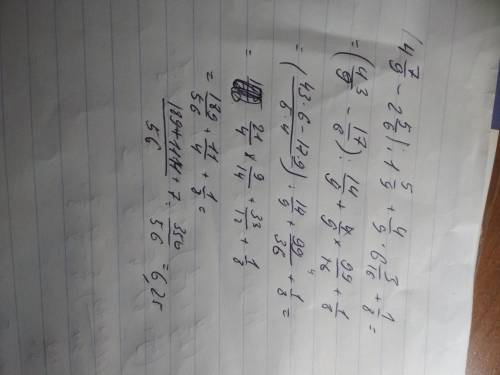 (4 7/9 - 2 5/6) : 1 5/9 + 4/9 · 6 3/16 + 1/8 =
= (43/9 - 17/6) : 14/9 + 4/9 × 99/16 + 1/8
= (43·6 - 17·9) : 14/9 + 99/36 + 1/8 =
= 21/4 × 9/14 + 33/12 + 1/8
= 189/56 + 11/4 + 1/8 =
+ 7 = 350/56 = 6,25